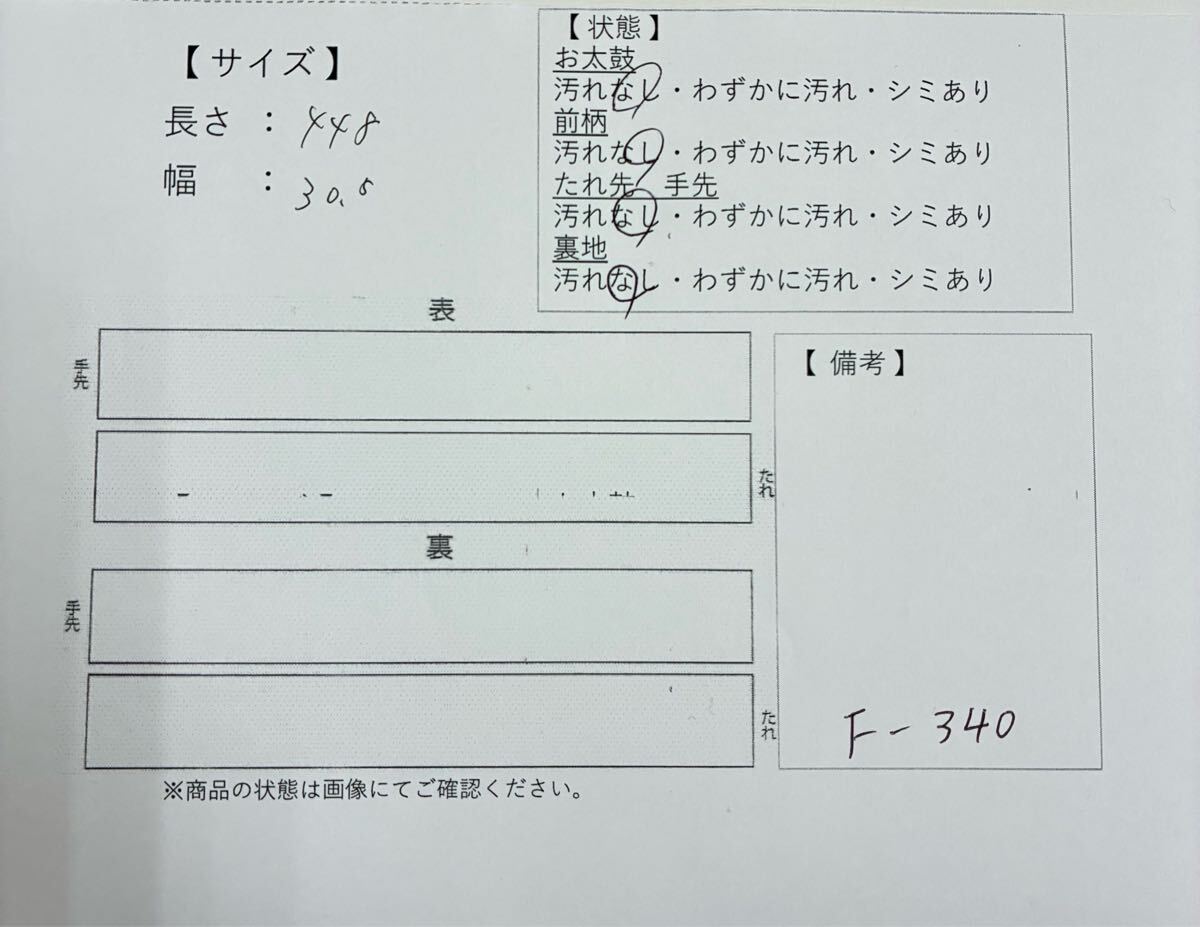 【サイズ】
長さ : 448
幅 : 30.5
【状態】
お太鼓
汚れなし・わずかに汚れ・シミあり
前柄
汚れなし・わずかに汚れ・シミあり
たれ先 手先
汚れなし・わずかに汚れ・シミあり
裏地
汚れなし・わずかに汚れ・シミあり
表
手先
たれ
裏
手先
たれ
【備考】
F-340
※商品の状態は画像にてご確認ください。